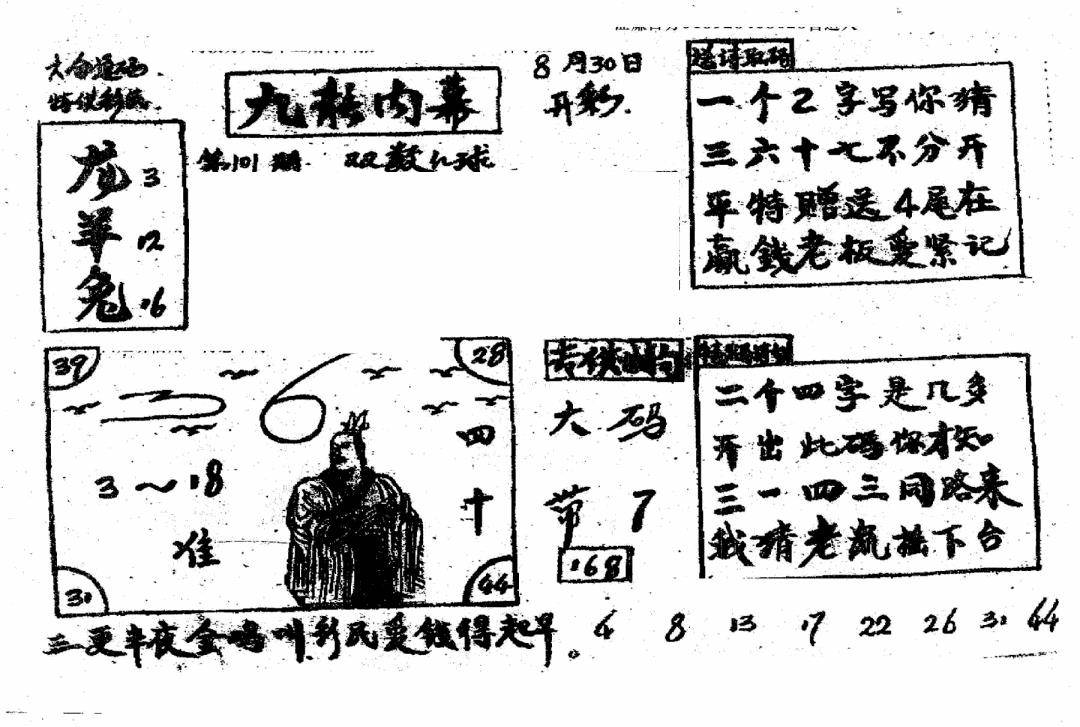 九龙内幕
8月30日
开彩.
第101期. 双数红球
龙 3
羊 12
兔 16
送诗取码
一个2字写你猜
三六十七不分开
平特赠送4尾在
赢錢老板要紧记
39
28
6
四十
3~18
准
31
44
大码
带7
168
二个四字是几多
开出此码你才知
三一四三同路来
我猜老鼠摇下台
三更半夜金鸡叫,彩民爱錢得起早。
4 8 13 17 22 26 31 44